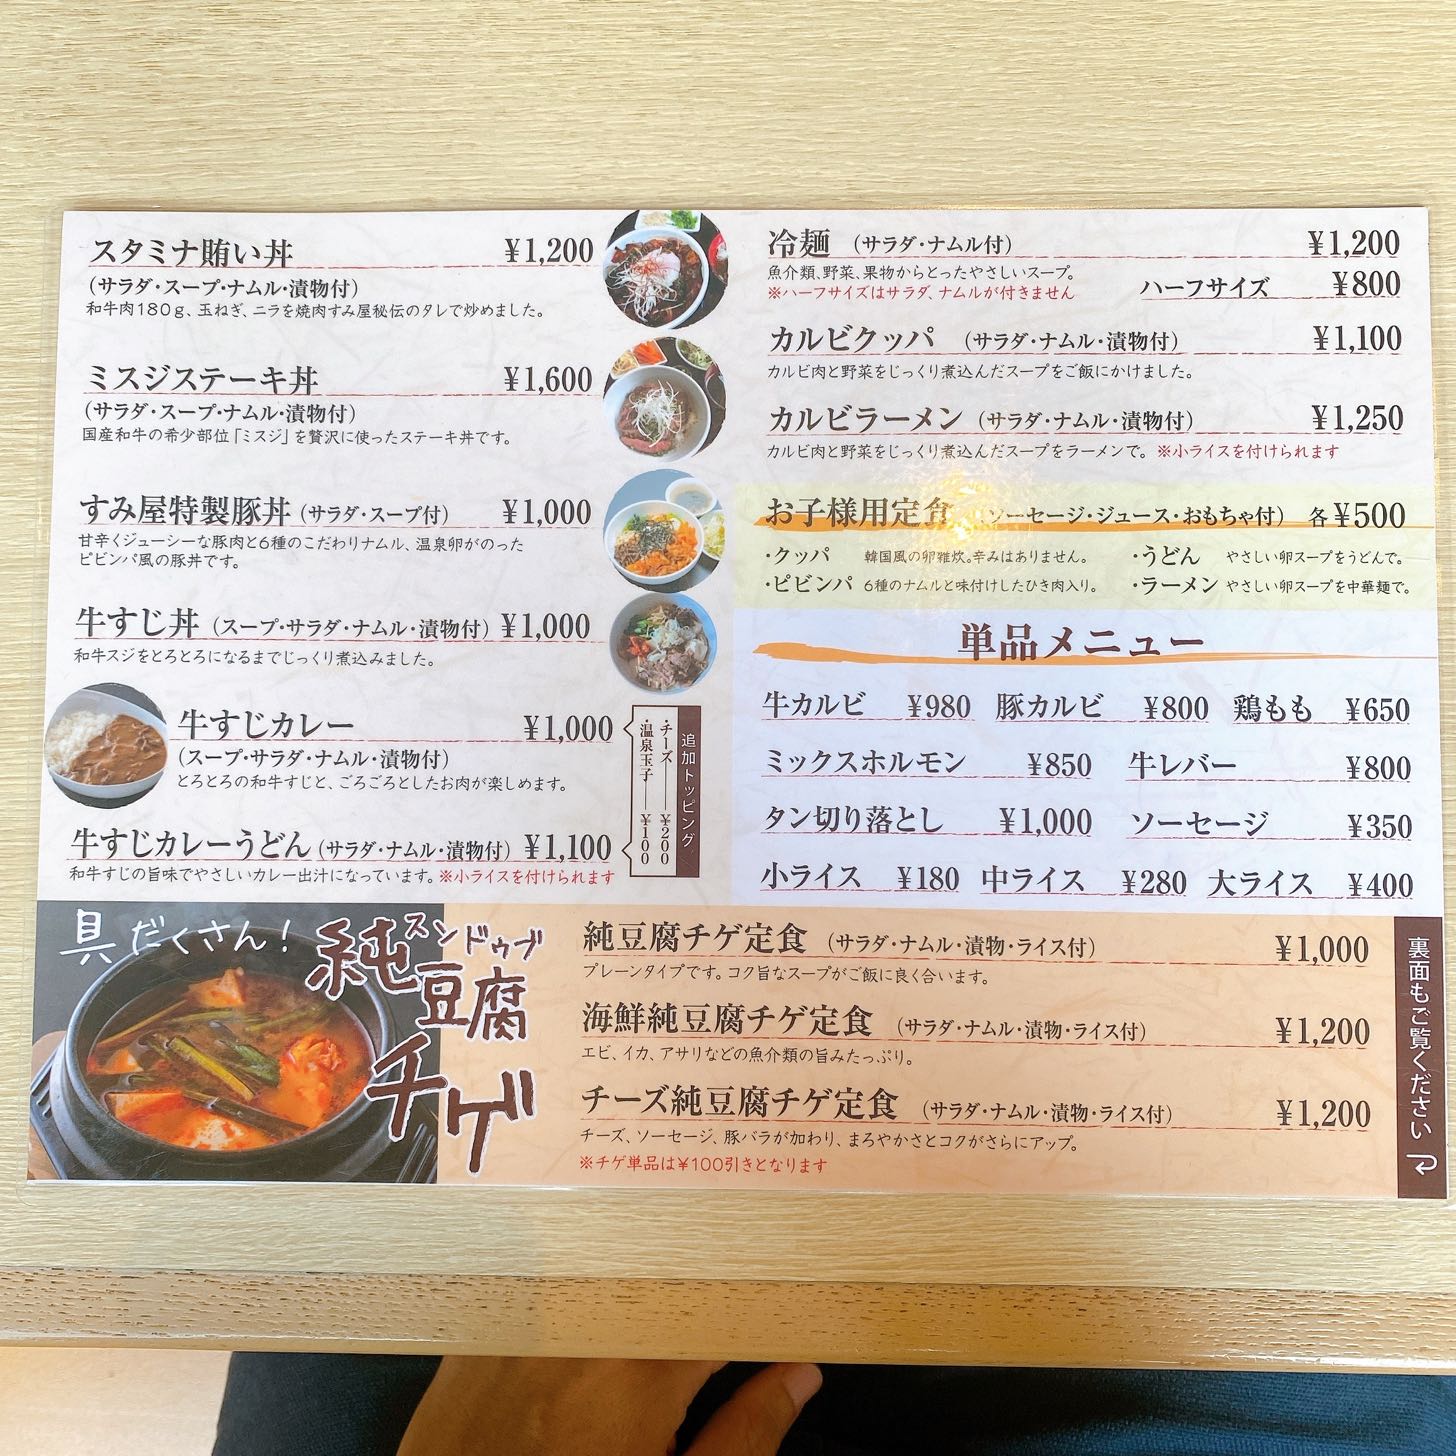 スタミナ賄い丼 ¥1,200
(サラダ・スープ・ナムル・漬物付)
和牛肉180g、玉ねぎ、ニラを焼肉すみ屋秘伝のタレで炒めました。
ミスジステーキ丼 ¥1,600
(サラダ・スープ・ナムル・漬物付)
国産和牛の希少部位「ミスジ」を贅沢に使ったステーキ丼です。
すみ屋特製豚丼(サラダ・スープ付) ¥1,000
甘辛くジューシーな豚肉と6種のこだわりナムル、温泉卵がのった
ピビンパ風の豚丼です。
牛すじ丼(スープ・サラダ・ナムル・漬物付) ¥1,000
和牛スジをとろとろになるまでじっくり煮込みました。
牛すじカレー ¥1,000
(スープ・サラダ・ナムル・漬物付)
とろとろの和牛すじと、ごろごろとしたお肉が楽しめます。
牛すじカレーうどん(サラダ・ナムル・漬物付) ¥1,100
和牛すじの旨味でやさしいカレー出汁になっています。※小ライスを付けられます
追加トッピング
・チーズ ¥200
・温泉玉子 ¥100
冷麺 (サラダ・ナムル付) ¥1,200
魚介類、野菜、果物からとったやさしいスープ。
※ハーフサイズはサラダ、ナムルが付きません ハーフサイズ ¥800
カルビクッパ (サラダ・ナムル・漬物付) ¥1,100
カルビ肉と野菜をじっくり煮込んだスープをご飯にかけました。
カルビラーメン(サラダ・ナムル・漬物付) ¥1,250
カルビ肉と野菜をじっくり煮込んだスープをラーメンで。※小ライスを付けられます
お子様用定食 (ソーセージ・ジュース・おもちゃ付) 各¥500
・クッパ 韓国風の卵雑炊。辛みはありません。 ・うどん やさしい卵スープをうどんで。
・ピビンパ 6種のナムルと味付けしたひき肉入り。 ・ラーメン やさしい卵スープを中華麺で。
単品メニュー
牛カルビ ¥980 豚カルビ ¥800 鶏もも ¥650
ミックスホルモン ¥850 牛レバー ¥800
タン切り落とし ¥1,000 ソーセージ ¥350
小ライス ¥180 中ライス ¥280 大ライス ¥400
具だくさん!
スンドゥブ
純豆腐
チゲ
純豆腐チゲ定食 (サラダ・ナムル・漬物・ライス付) ¥1,000
プレーンタイプです。コク旨なスープがご飯に良く合います。
海鮮純豆腐チゲ定食 (サラダ・ナムル・漬物・ライス付) ¥1,200
エビ、イカ、アサリなどの魚介類の旨みたっぷり。
チーズ純豆腐チゲ定食 (サラダ・ナムル・漬物・ライス付) ¥1,200
チーズ、ソーセージ、豚バラが加わり、まろやかさとコクがさらにアップ。
※チゲ単品は¥100引きとなります
裏面もご覧ください